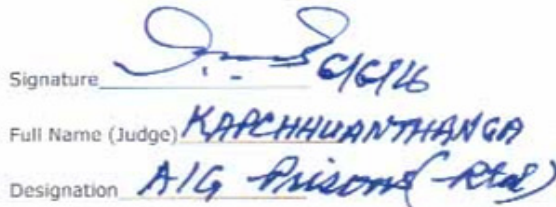 Signature 6/6/16
Full Name (Judge) KAPCHHUANTHANGA
Designation AIG Prisons (Rtd)